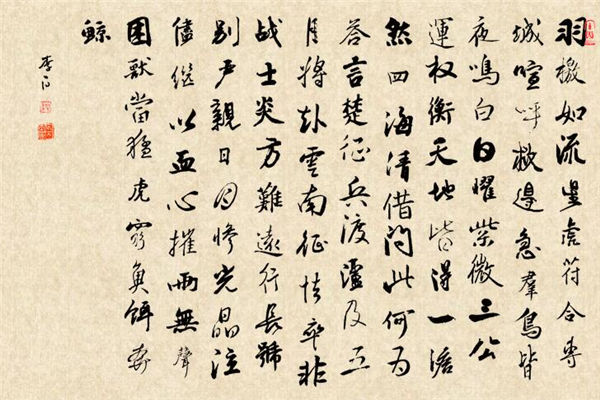 羽檄如流星虎符合專
城喧呼救邊急群鳥皆
夜鳴白日曜紫微三公
運权衡天地皆得一澹
然四海清借問此何为
答言楚征兵渡瀘及五
月將赴雲南征怯卒非
战士炎方難遠行長號
别严親日月慘光晶泣
儘继以血心摧兩無聲
困獸當猛虎窮魚餌奔
鲸
李白